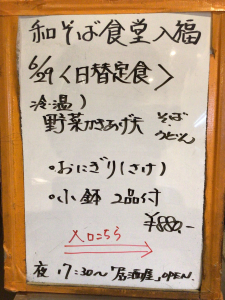 和そば食堂入福
6/29〈日替定食〉
冷・温)
野菜かきあげ天 そば・うどん
・おにぎり(さけ)
・小鉢 2品付
¥880-
入口こちら
夜 17:30〜「居酒屋」OPEN.